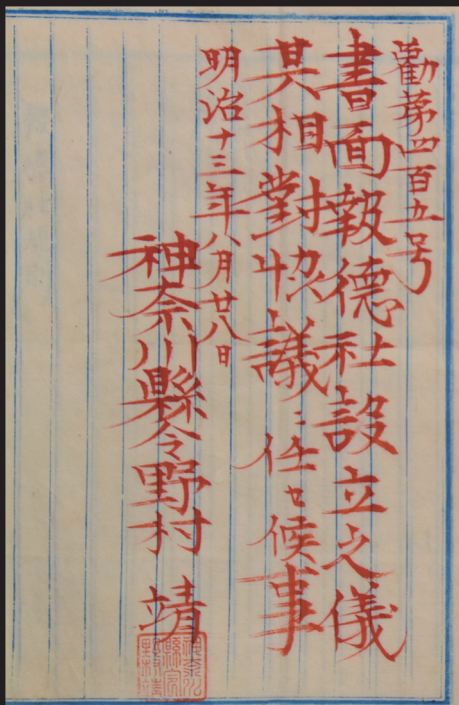 勸第四百五号
書面報德社設立之儀
其相對協議ニ任セ候事
明治十三年八月廿八日
神奈川縣令野村 靖